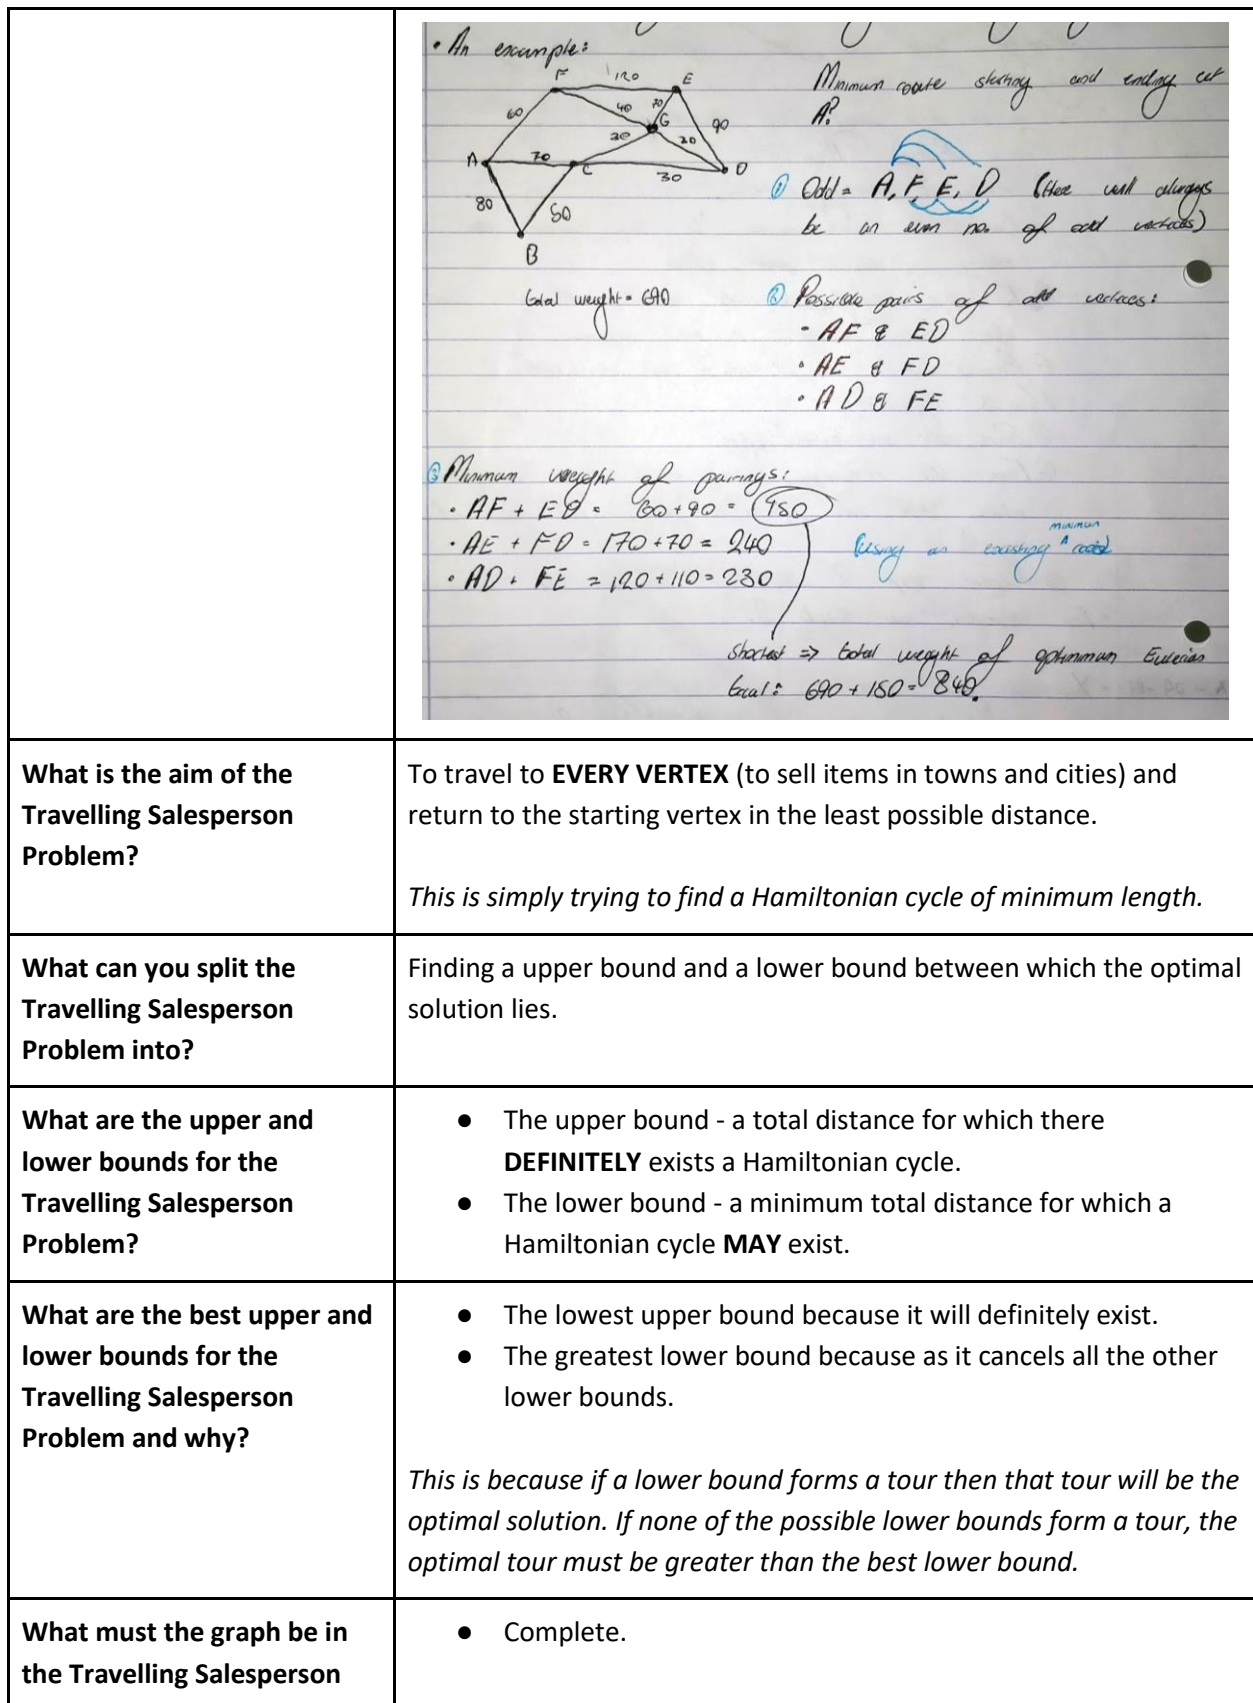 • An example:
Minimum route starting and ending at
A?
F 120 E
60 40 70 G 90
A 70 C 30 30 D
30
80 50
B
total weight = 690
① Odd = A, F, E, D (there will always
be an even no. of odd vertices)
② Possible pairs of odd vertices:
• AF & ED
• AE & FD
• AD & FE
③ Minimum weight of pairings:
• AF + ED = 60+90 = 150
• AE + FD = 170+70 = 240
• AD + FE = 120+110 = 230
(using an existing minimum route)
Shortest => total weight of optimum Eulerian
trail: 690 + 150 = 840.
What is the aim of the
Travelling Salesperson
Problem?
To travel to EVERY VERTEX (to sell items in towns and cities) and
return to the starting vertex in the least possible distance.
This is simply trying to find a Hamiltonian cycle of minimum length.
What can you split the
Travelling Salesperson
Problem into?
Finding a upper bound and a lower bound between which the optimal
solution lies.
What are the upper and
lower bounds for the
Travelling Salesperson
Problem?
● The upper bound - a total distance for which there
DEFINITELY exists a Hamiltonian cycle.
● The lower bound - a minimum total distance for which a
Hamiltonian cycle MAY exist.
What are the best upper and
lower bounds for the
Travelling Salesperson
Problem and why?
● The lowest upper bound because it will definitely exist.
● The greatest lower bound because as it cancels all the other
lower bounds.
This is because if a lower bound forms a tour then that tour will be the
optimal solution. If none of the possible lower bounds form a tour, the
optimal tour must be greater than the best lower bound.
What must the graph be in
the Travelling Salesperson
● Complete.